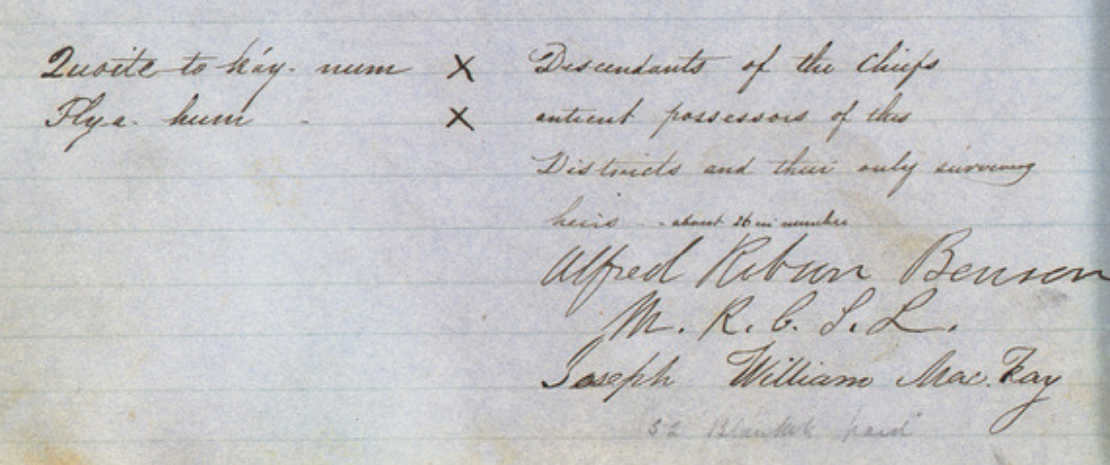 Quoite to káy-num × Descendants of the Chiefs
Flya. hum - × antient possessors of this
Districts and their only surviving
heirs - - about 26 in number
Alfred Robson Benson
M. R. C. S. L.
Joseph William MacKay
52 Blankets paid